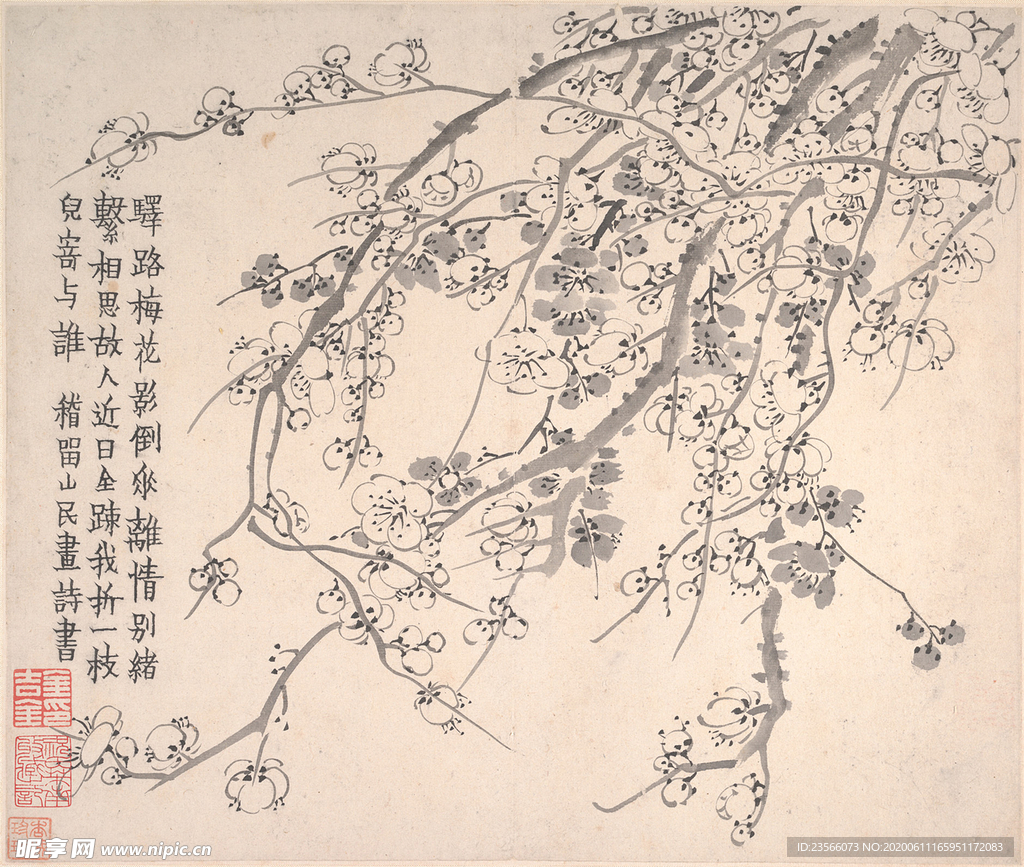 驛路梅花影倒垂離情別緒
繫相思故人近日全疎我折一枝
兒寄与誰 稽留山民畫詩書
金吉金印
昵享网 www.nipic.cn
ID:23566073 NO:20200611165951172083